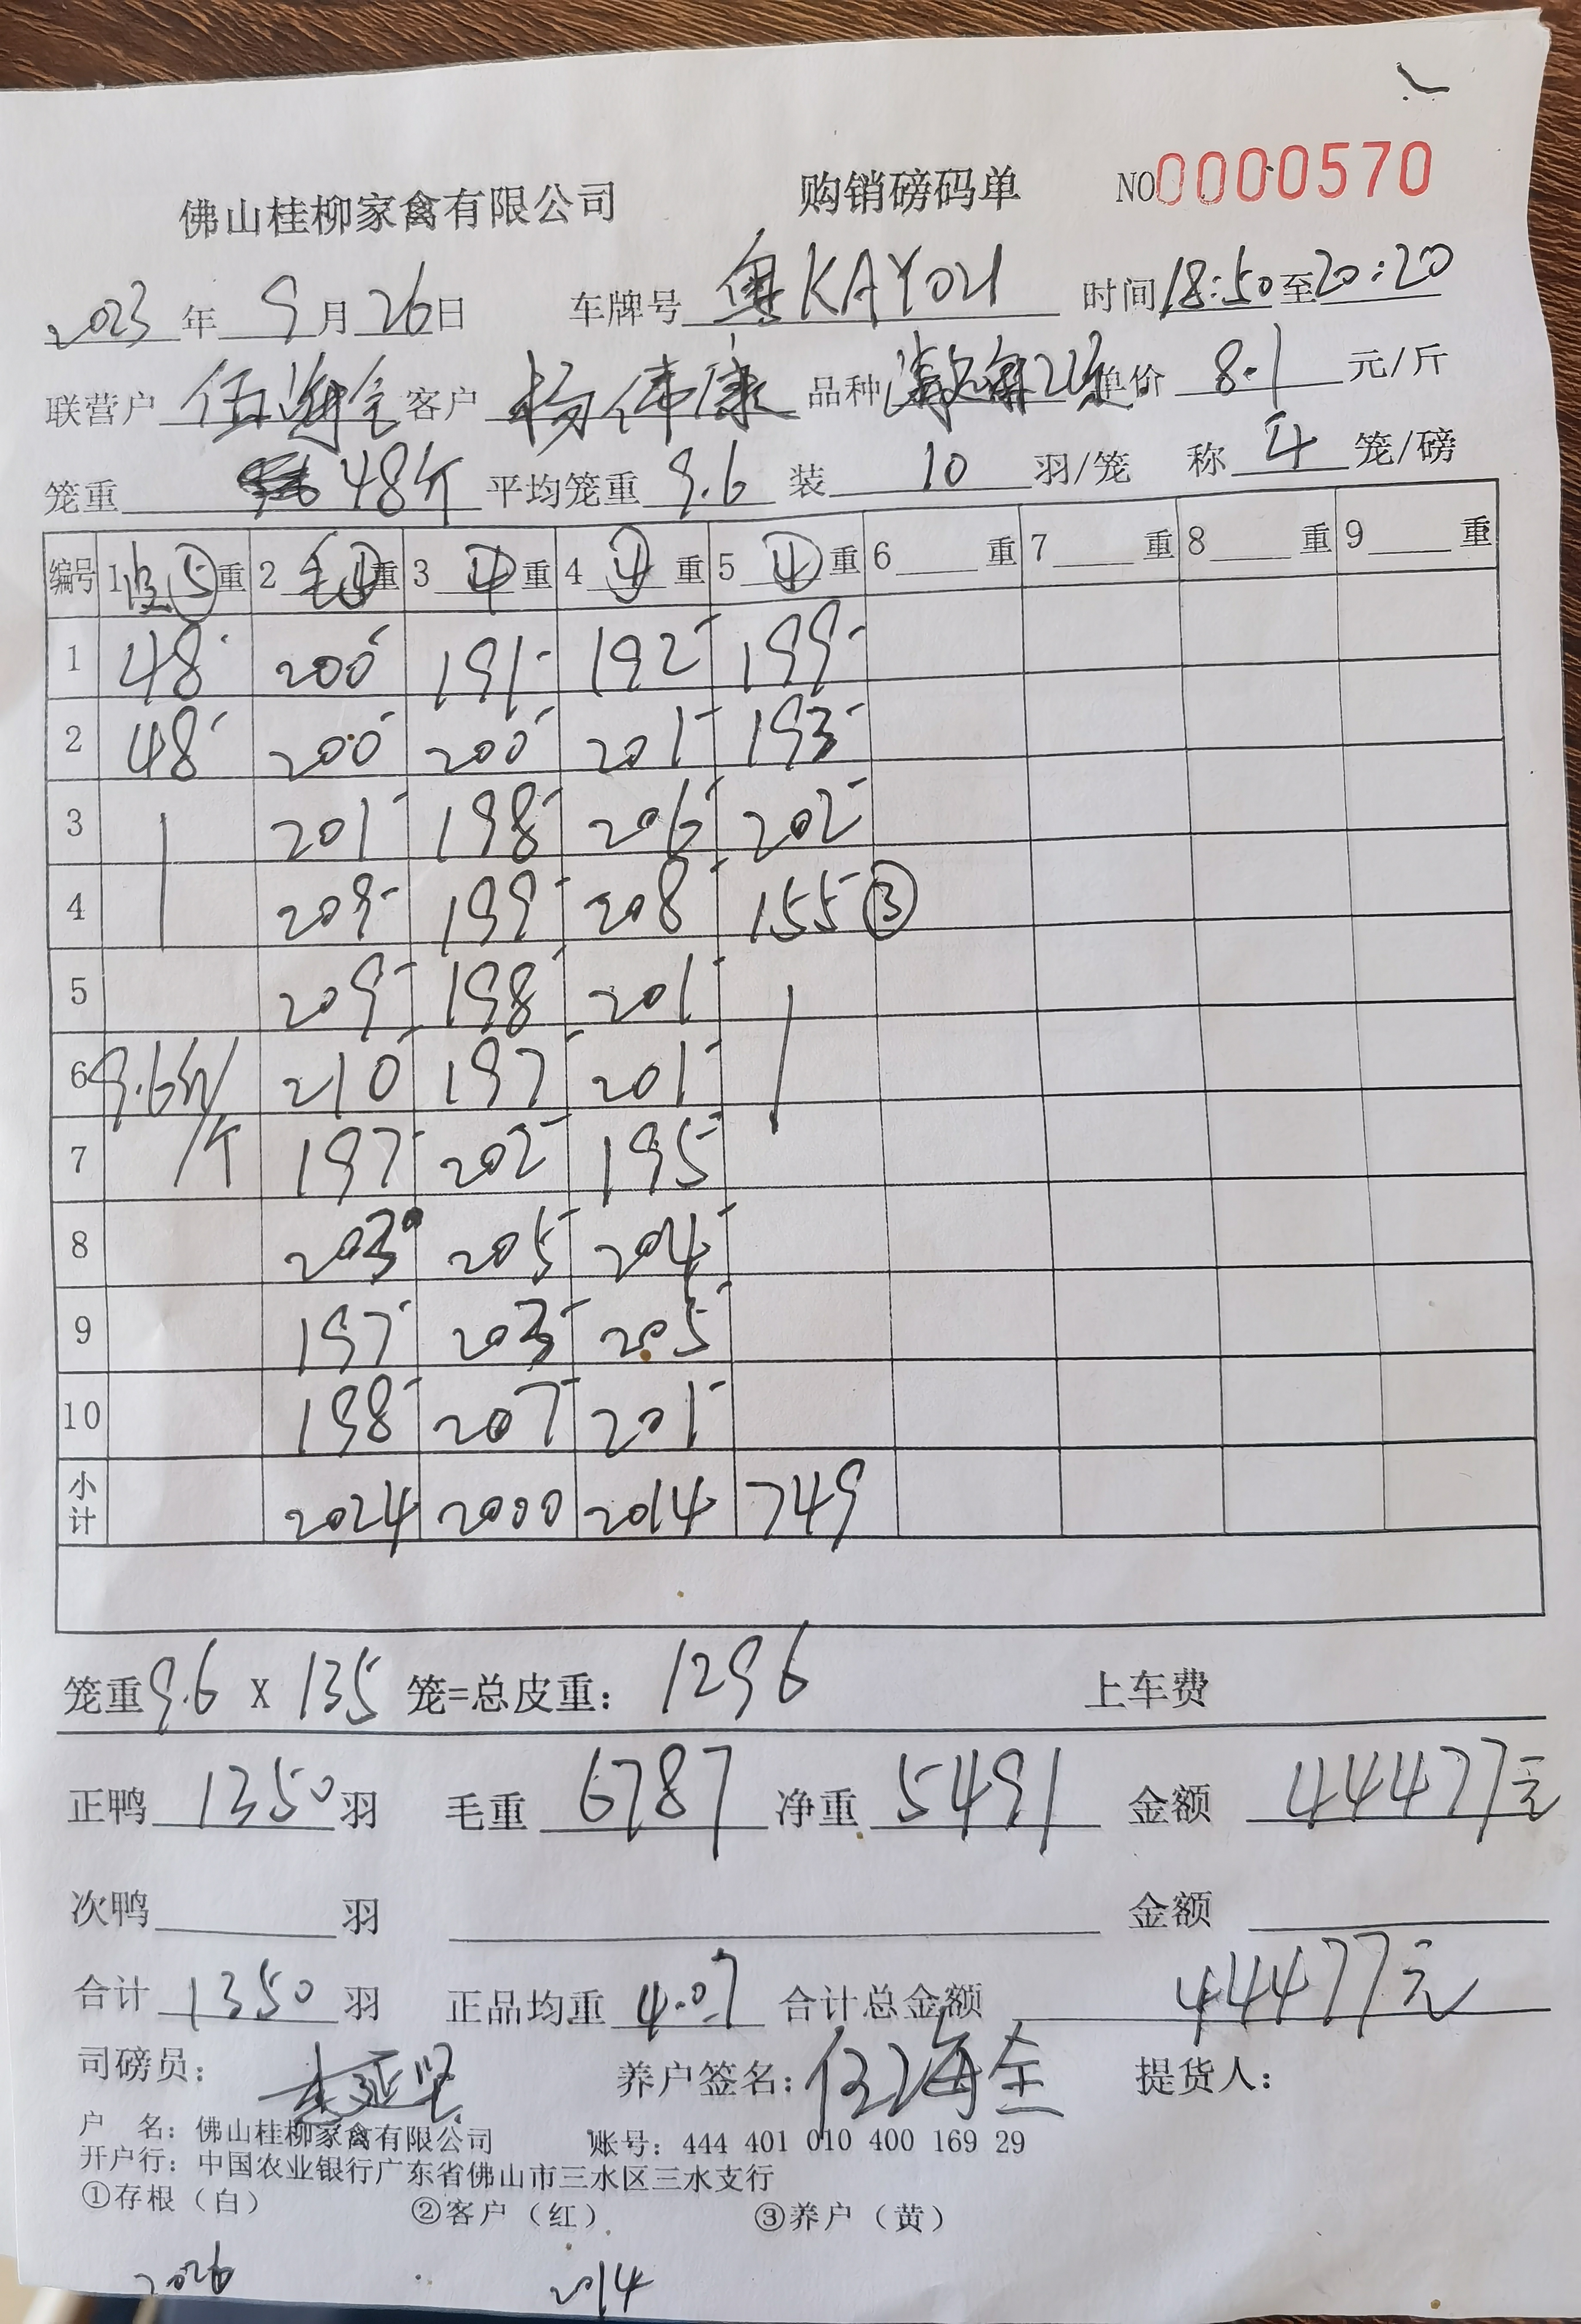 佛山桂柳家禽有限公司 购销磅码单 NO0000570
2023年9月26日 车牌号 粤KAY021 时间18:50至20:20
联营户 伍海全 客户 杨伟康 品种 单价 8.1 元/斤
笼重 48斤 平均笼重 9.6 装 10 羽/笼 称 4 笼/磅
编号 1 皮⑤重 2 毛④重 3 ④重 4 ④重 5 ④重 6 重 7 重 8 重 9 重
1 48 200 191 192 199
2 48 200 200 201 193
3 201 198 206 202
4 209 199 208 155 ③
5 209 198 201
6 9.6斤/ 210 197 201
7 /个 197 202 195
8 203 205 204
9 197 203 205
10 198 207 201
小计 2024 2000 2014 749
笼重9.6 X 135 笼=总皮重: 1296 上车费
正鸭 1350 羽 毛重 6787 净重 5491 金额 44477元
次鸭 羽 金额
合计 1350 羽 正品均重 4.07 合计总金额 44477元
司磅员: 养户签名: 伍海全 提货人:
户 名: 佛山桂柳家禽有限公司 账号: 444 401 010 400 169 29
开户行: 中国农业银行广东省佛山市三水区三水支行
①存根（白） ②客户（红） ③养户（黄）
2026 2014